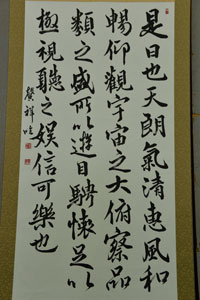 是日也天朗氣清惠風和
暢仰觀宇宙之大俯察品
類之盛所以遊目騁懷足以
極視聽之娛信可樂也